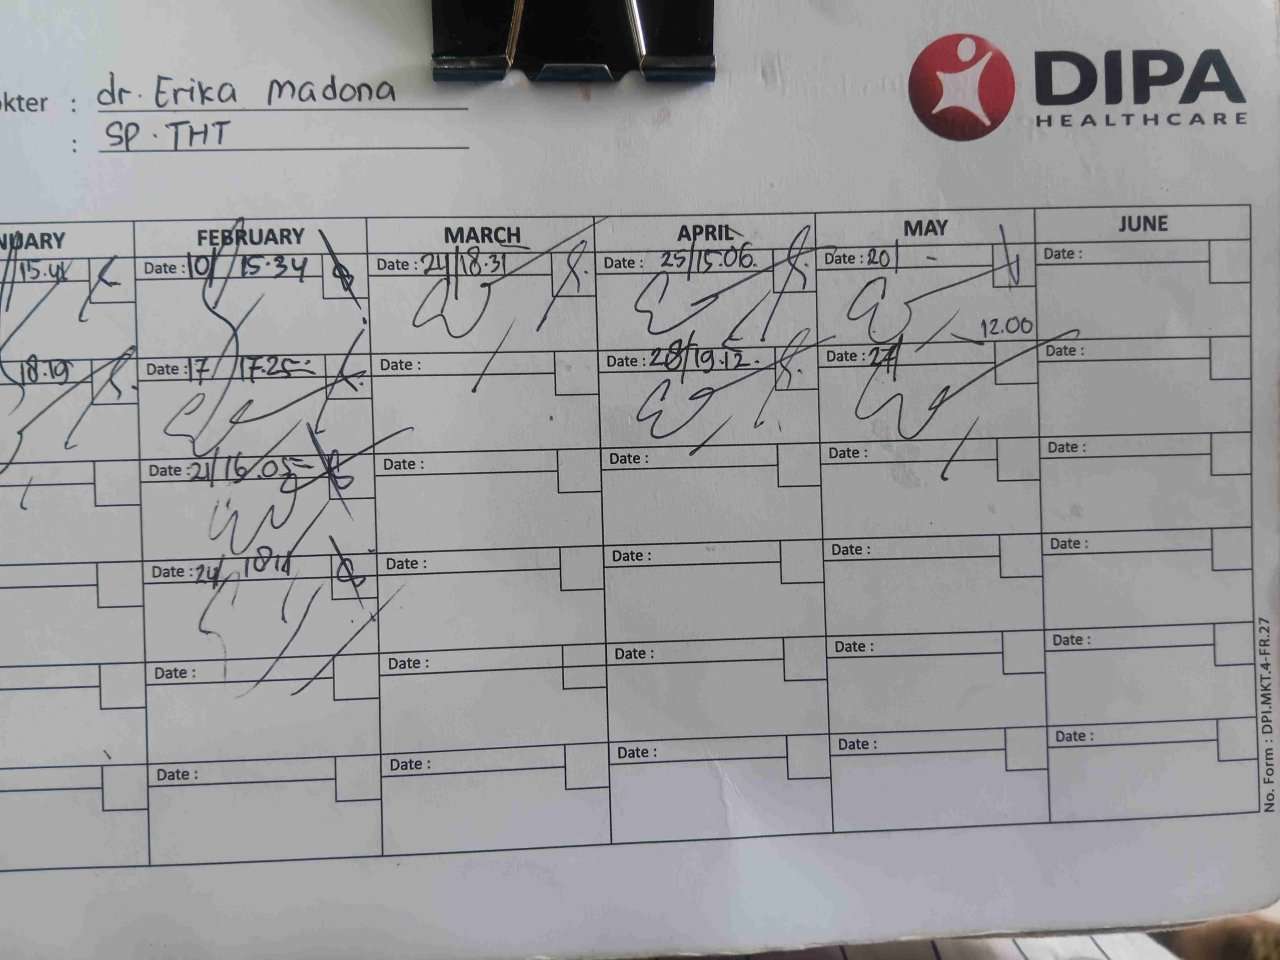 DIPA
HEALTHCARE
kter : dr. Erika madona
: SP. THT
NUARY FEBRUARY MARCH APRIL MAY JUNE
15.41 Date : 10/ 15.34 Date : 24/18.31 Date : 25/15.06. Date : 20/ - Date :
12.00
18.19 Date : 17/ 17.25 Date : Date : 28/19.12. Date : 27/ Date :
Date : 21/16.05 Date : Date : Date : Date :
Date : 24/ 1811 Date : Date : Date : Date :
Date : Date : Date : Date : Date :
Date : Date : Date : Date : Date :
No. Form : DPI.MKT.4-FR.27